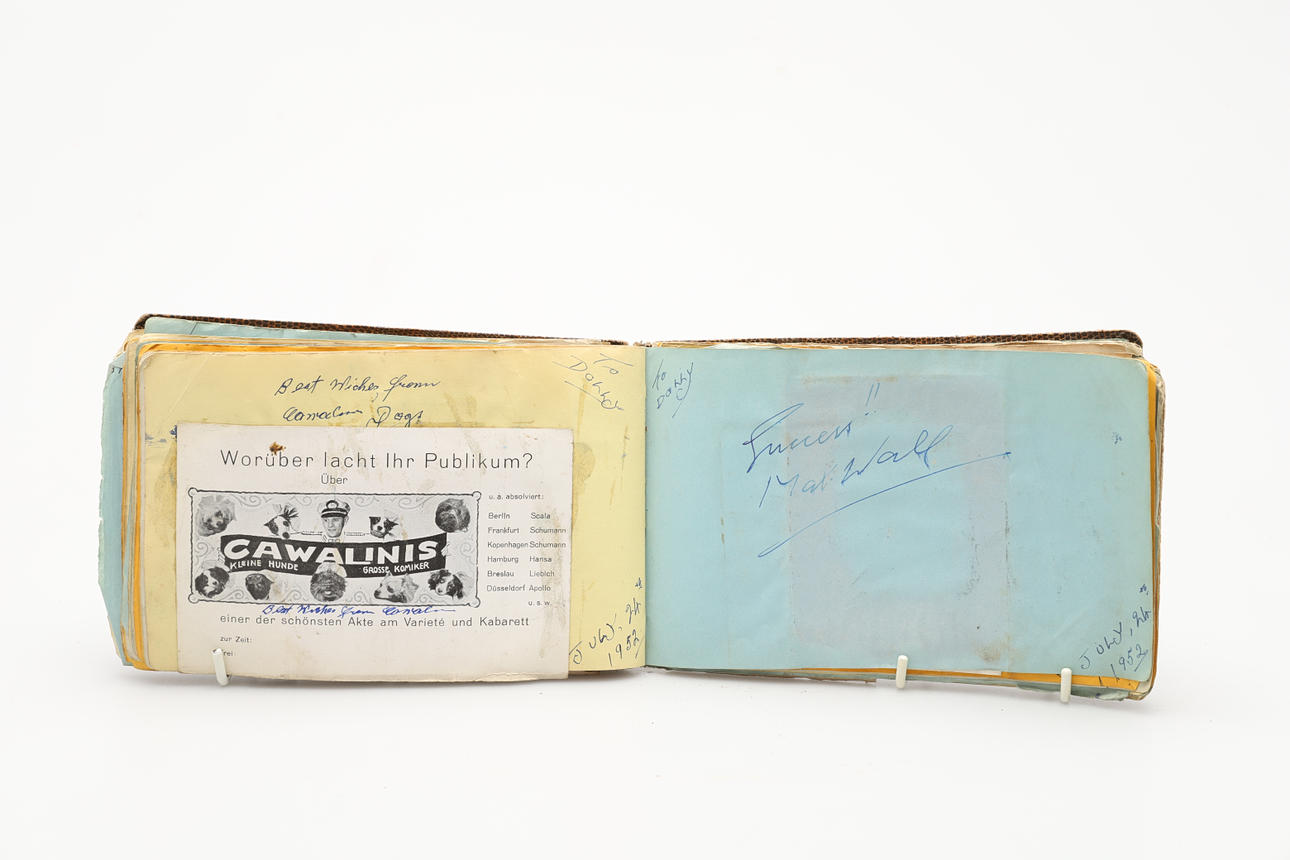 Best Wishes from
Cawalini Dogs
To
DOLLY
Worüber lacht Ihr Publikum?
Über
CAWALINIS
KLEINE HUNDE
GROSSE KOMIKER
u. a. absolviert:
Berlin Scala
Frankfurt Schumann
Kopenhagen Schumann
Hamburg Hansa
Breslau Liebich
Düsseldorf Apollo
u. s. w.
Best Wishes from Cawalini
einer der schönsten Akte am Varieté und Kabarett
zur Zeit:
frei:
JULY,
1952
To
DOLLY
Success!!
Max Wall
JULY,
1952